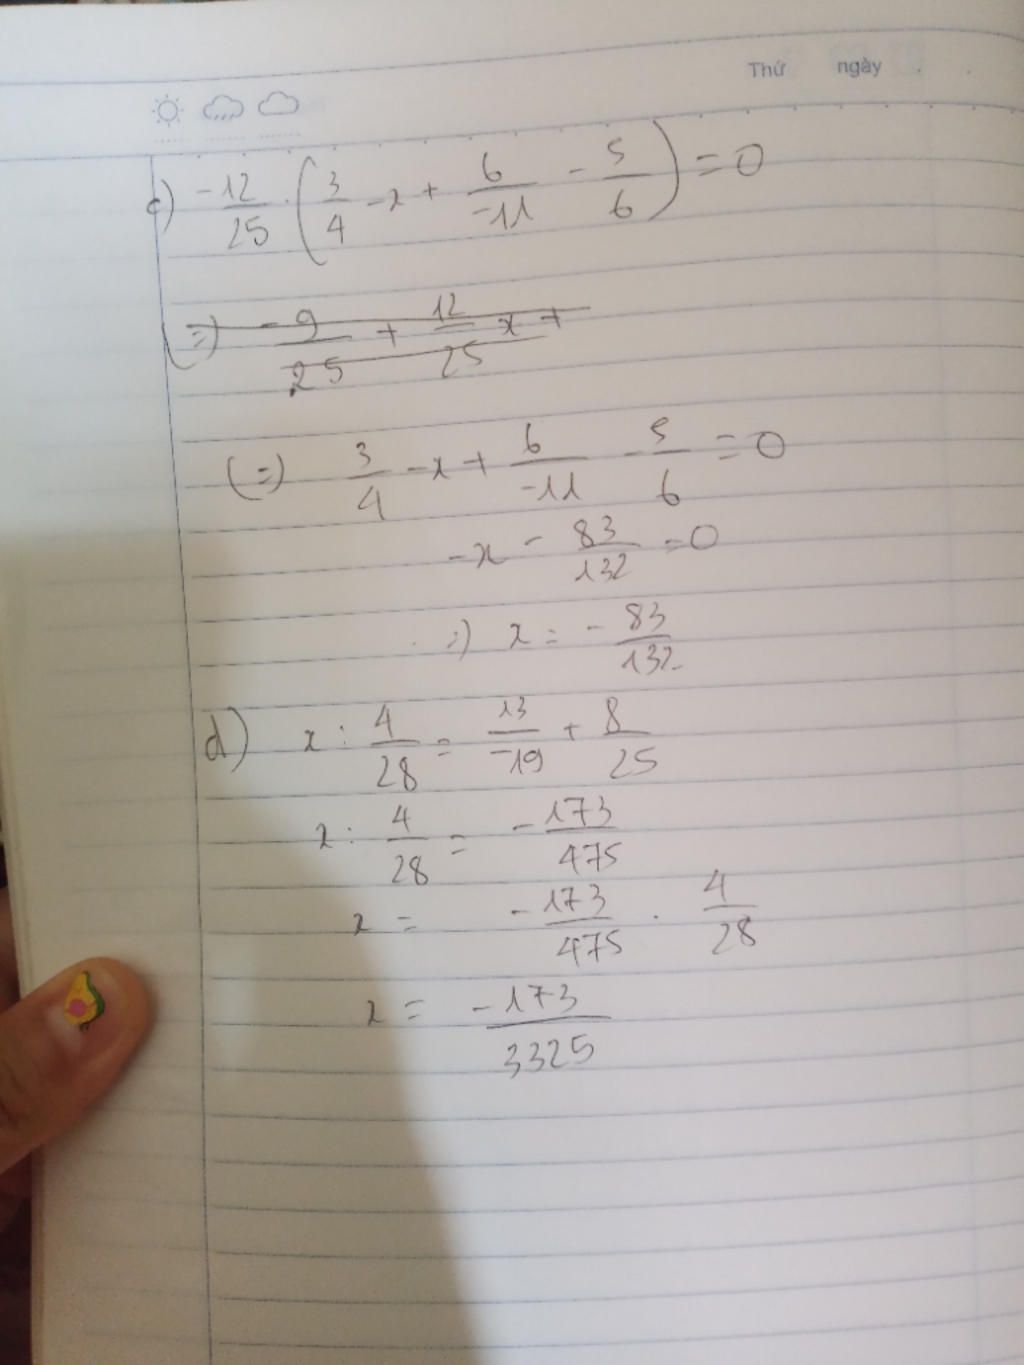 Thứ ngày
c) -12/25 . (3/4 - x + 6/-11 - 5/6) = 0
(=) -9/25 + 12/25 x +
(=) 3/4 - x + 6/-11 - 5/6 = 0
-x - 83/132 = 0
=) x = - 83/132
d) x : 4/28 = 13/-19 + 8/25
x : 4/28 = -173/475
x = -173/475 . 4/28
x = -173/3325